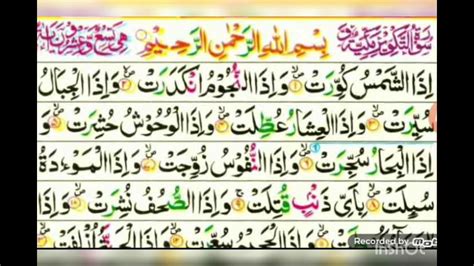 سورة التكوير مكية بِسْمِ اللهِ الرَّحْمٰنِ الرَّحِيْمِ هي تسع وعشرون اية
اِذَا الشَّمْسُ كُوِّرَتْ ۝۱ وَاِذَا النُّجُوْمُ انْكَدَرَتْ ۝۲ وَاِذَا الْجِبَالُ
سُيِّرَتْ ۝۳ وَاِذَا الْعِشَارُ عُطِّلَتْ ۝۴ وَاِذَا الْوُحُوْشُ حُشِرَتْ ۝۵ وَ
اِذَا الْبِحَارُ سُجِّرَتْ ۝۶ وَاِذَا النُّفُوْسُ زُوِّجَتْ ۝۷ وَاِذَا الْمَوْءٗدَةُ
سُىِٕلَتْ ۝۸ بِاَىِّ ذَنْۢبٍ قُتِلَتْ ۝۹ وَاِذَا الصُّحُفُ نُشِرَتْ ۝۱۰ وَاِذَا
السَّمَآءُ كُشِطَتْ ۝۱۱ وَاِذَا الْجَحِيْمُ سُعِّرَتْ ۝۱۲ وَاِذَا الْجَنَّةُ اُزْلِفَتْ
Recorded by
InShOt